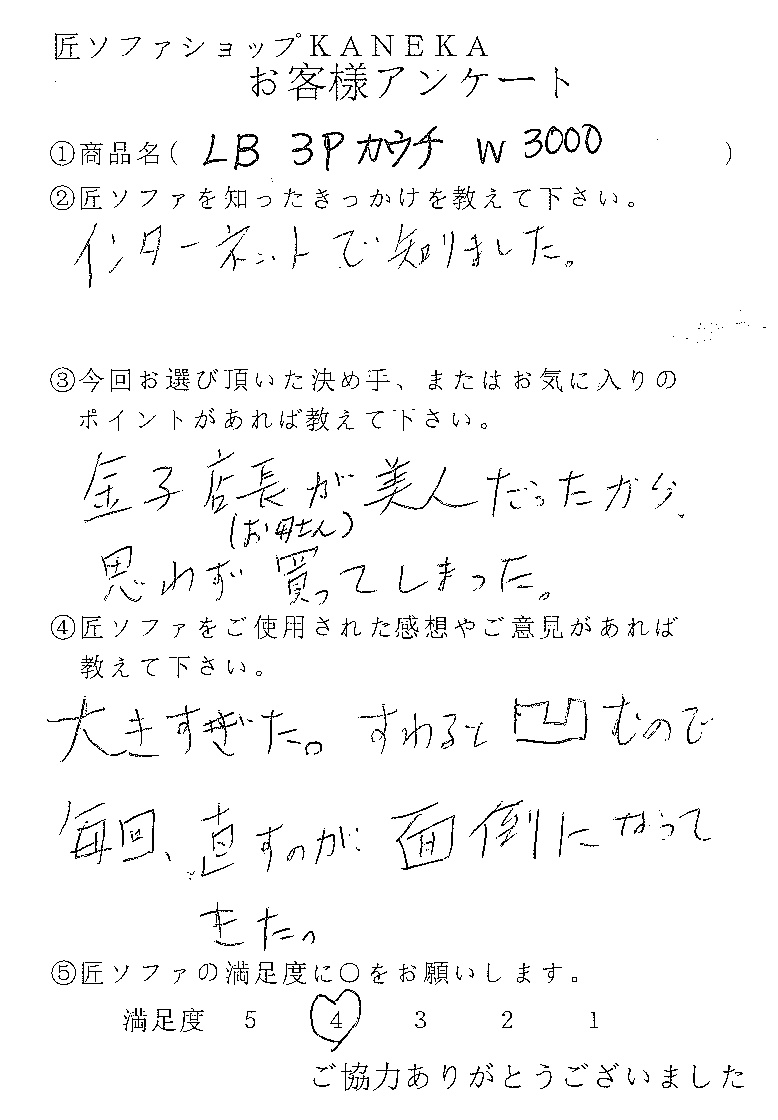 匠ソファショップＫＡＮＥＫＡ
お客様アンケート
①商品名( LB 3Pカウチ W 3000 )
②匠ソファを知ったきっかけを教えて下さい。
インターネットで知りました。
③今回お選び頂いた決め手、またはお気に入りの
ポイントがあれば教えて下さい。
金子店長が美人だったから、
(お母さん)
思わず買ってしまった。
④匠ソファをご使用された感想やご意見があれば
教えて下さい。
大きすぎた。すわると凹むので
毎回、直すのが面倒になって
きた。
⑤匠ソファの満足度に○をお願いします。
満足度 5 4 3 2 1
ご協力ありがとうございました